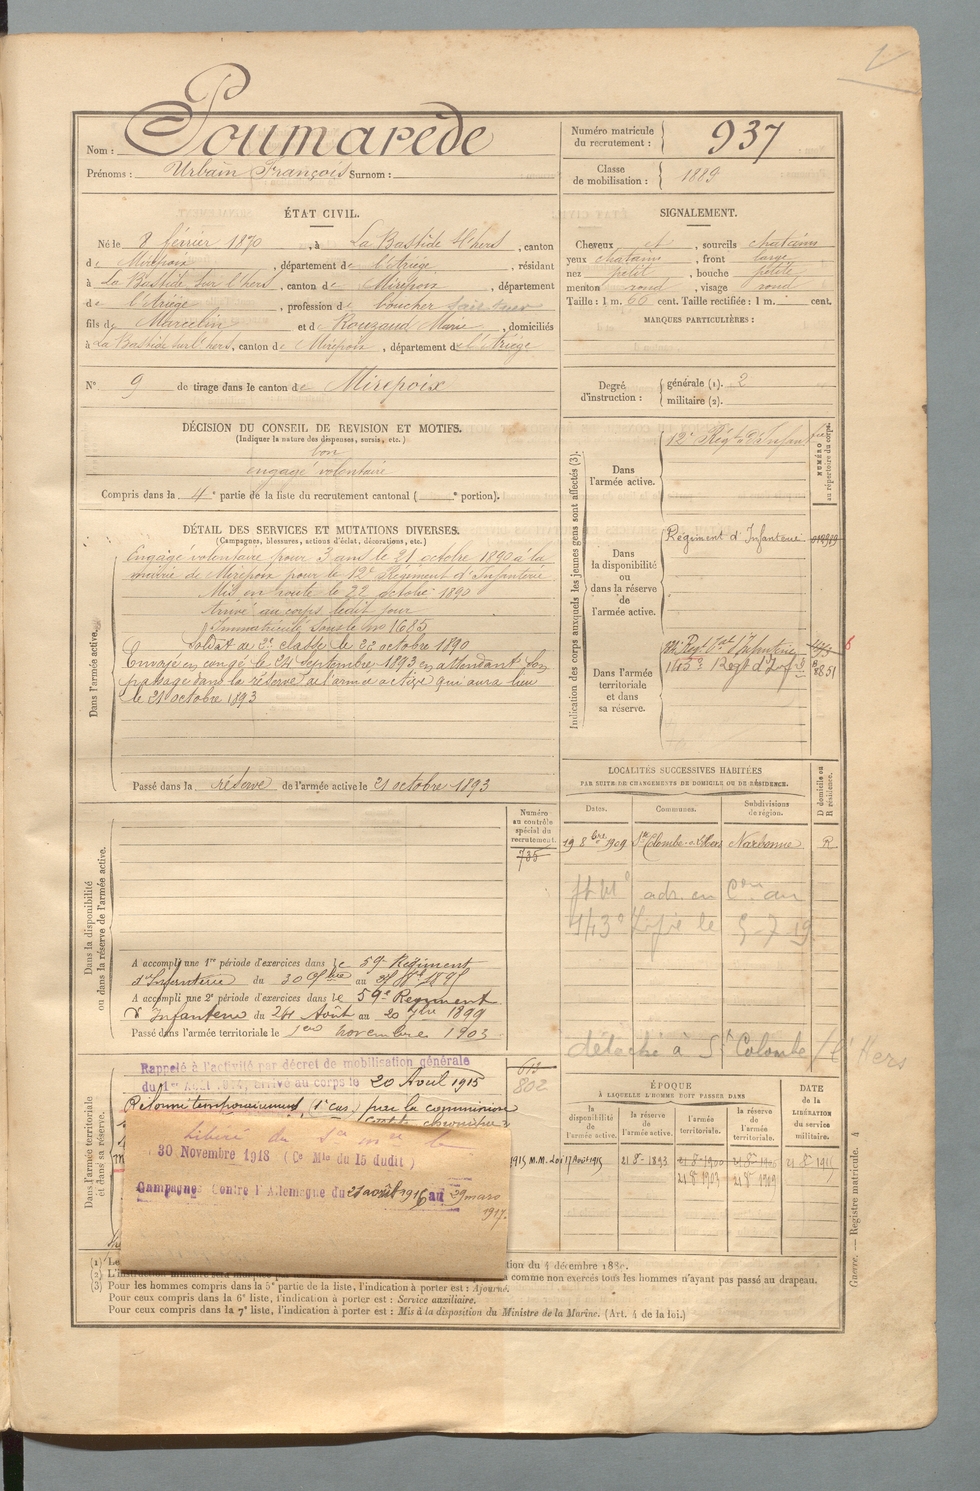 Nom : Poumarède
Prénoms : Urbain François Surnom :
Numéro matricule du recrutement : 937
Classe de mobilisation : 1889
ÉTAT CIVIL.
Né le 8 février 1870, à La Bastide l'hers, canton
de Mirepoix, département de l'Ariège, résidant
à La Bastide sur l'hers, canton de Mirepoix, département
de l'Ariège, profession de boucher
fils de Marcelin et de Rouzaud Marie, domiciliés
à La Bastide sur l'hers, canton de Mirepoix, département de l'Ariège
N° 9 de tirage dans le canton de Mirepoix
SIGNALEMENT.
Cheveux et, sourcils chatains
yeux chatains, front large
nez petit, bouche petite
menton rond, visage rond
Taille : 1 m. 66 cent. Taille rectifiée : 1 m. cent.
MARQUES PARTICULIÈRES :
Degré d'instruction : générale (1). 2
militaire (2).
DÉCISION DU CONSEIL DE REVISION ET MOTIFS.
(Indiquer la nature des dispenses, sursis, etc.)
bon
engagé volontaire
Compris dans la 4e partie de la liste du recrutement cantonal ( e portion).
DÉTAIL DES SERVICES ET MUTATIONS DIVERSES.
(Campagnes, blessures, actions d'éclat, décorations, etc.)
Dans l'armée active.
Engagé volontaire pour 3 ans le 21 octobre 1890 à la
mairie de Mirepoix pour le 12e Régiment d'Infanterie
Mis en route le 22 octobre 1890
Arrivé au corps ledit jour
Immatriculé sous le no 1685
Soldat de 2e classe le 22 octobre 1890
Envoyé en congé le 24 septembre 1893 en attendant son
passage dans la réserve de l'armée active qui aura lieu
le 21 octobre 1893
Passé dans la réserve de l'armée active le 21 octobre 1893
Indication des corps auxquels les jeunes gens sont affectés (3).
NUMÉRO au répertoire du corps.
Dans l'armée active.
12e Régt d'Infanterie
Dans la disponibilité ou dans la réserve de l'armée active.
Régiment d'Infanterie
Dans l'armée territoriale et dans sa réserve.
143e Régt d'Inf.ie
8851
LOCALITÉS SUCCESSIVES HABITÉES
PAR SUITE DE CHANGEMENTS DE DOMICILE OU DE RÉSIDENCE.
D domicile ou R résidence.
Dates. Communes. Subdivisions de région.
19 8bre 1909 Ste Colombe s. l'Hers Narbonne R.
adr. en
143e le 5-7-19
détaché à Ste Colombe / l'Hers
Dans la disponibilité ou dans la réserve de l'armée active.
Numéro au contrôle spécial du recrutement.
735
A accompli une 1re période d'exercices dans le 59e Régiment
d'Infanterie du 30 au
A accompli une 2e période d'exercices dans le 59e Régiment
d'Infanterie du 24 Août au 20 7bre 1899
Passé dans l'armée territoriale le 1er novembre 1903
Dans l'armée territoriale et dans sa réserve.
613
802
Rappelé à l'activité par décret de mobilisation générale
du 1er Août 1914, arrivé au corps le 20 Aout 1915
Retourné temporairement (1er cas) par la commission
Libéré du
30 Novembre 1918 (Ce Mle du 15 dudit)
Campagnes Contre l'Allemagne du 21 août 1916 au 29 mars
1917.
ÉPOQUE
À LAQUELLE L'HOMME DOIT PASSER DANS
la disponibilité de l'armée active. la réserve de l'armée active. l'armée territoriale. la réserve de l'armée territoriale.
DATE de la LIBÉRATION du service militaire.
1915 M.M. Loi 17 Août 1915 21 8bre 1893 21 8bre 1900 21 8bre 1915
21 8bre 1903 21 8bre 1909
Guerre. — Registre matricule. 4
(1) Le
(2) L'instruction militaire sera
tion du 4 décembre 188
comme non exercés tous les hommes n'ayant pas passé au drapeau.
(3) Pour les hommes compris dans la 5e partie de la liste, l'indication à porter est : Ajourné.
Pour ceux compris dans la 6e liste, l'indication à porter est : Service auxiliaire.
Pour ceux compris dans la 7e liste, l'indication à porter est : Mis à la disposition du Ministre de la Marine. (Art. 4 de la loi.)